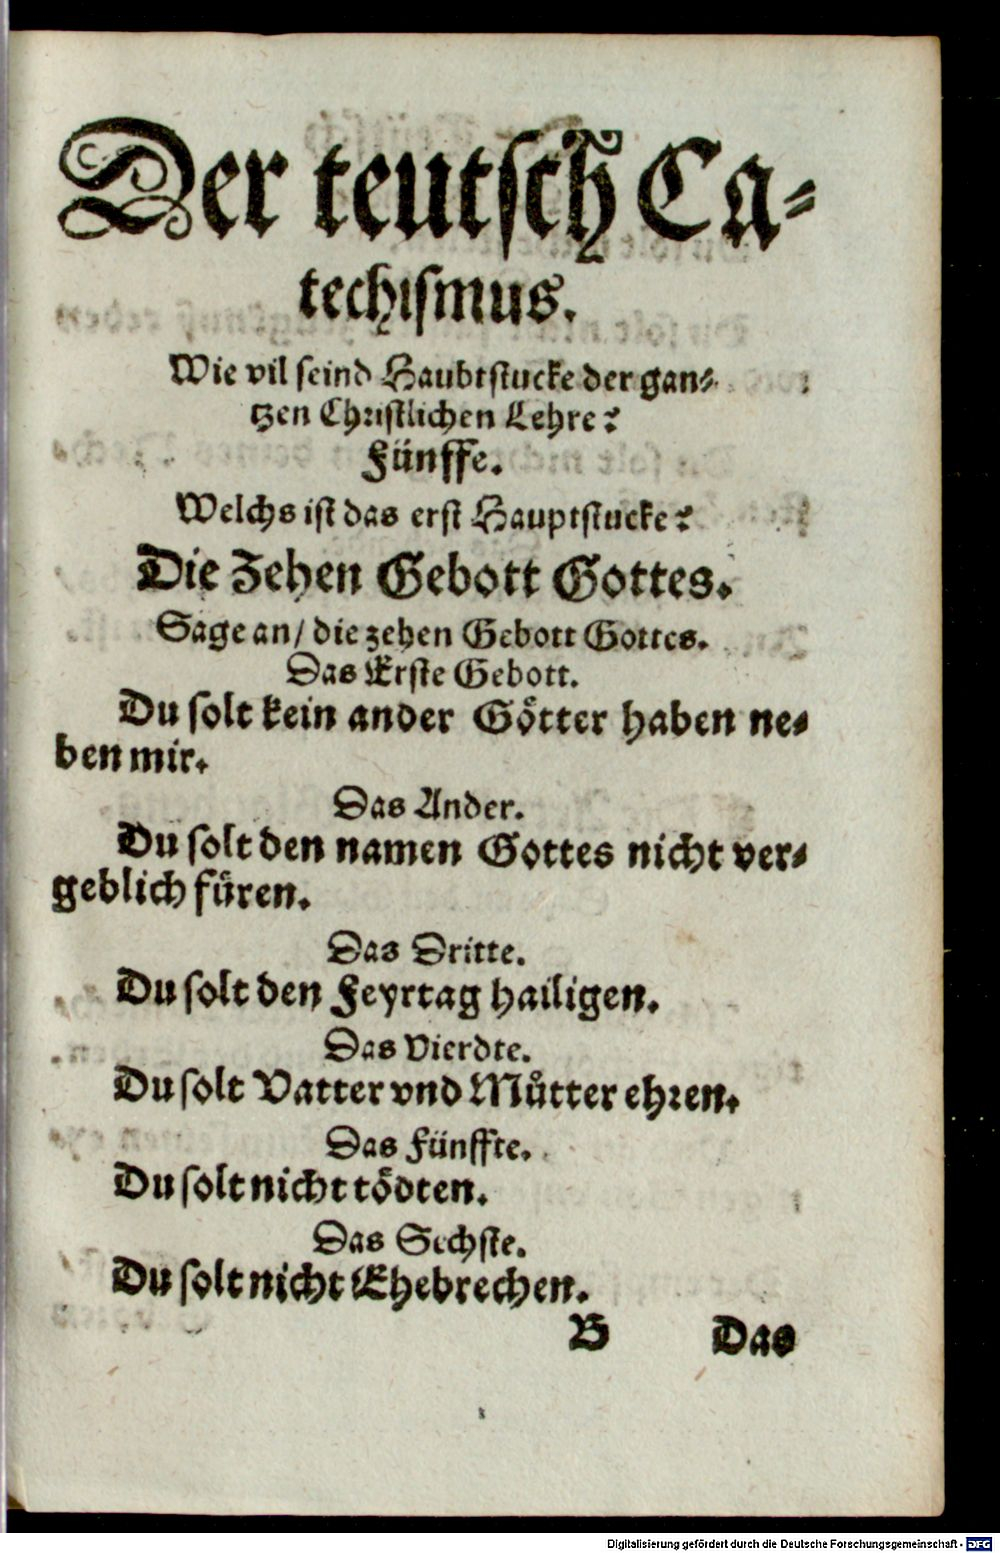 Der teutsch Ca-
techismus.
Wie vil seind Haubtstucke der gan-
tzen Christlichen Lehre?
Fünffe.
Welchs ist das erst Hauptstucke?
Die zehen Gebott Gottes.
Sage an/ die zehen Gebott Gottes.
Das Erste Gebott.
Du solt kein ander Götter haben ne-
ben mir.
Das Ander.
Du solt den namen Gottes nicht ver-
geblich füren.
Das Dritte.
Du solt den Feyrtag hailigen.
Das Vierdte.
Du solt Vatter vnd Můtter ehren.
Das Fünffte.
Du solt nicht tödten.
Das Sechste.
Du solt nicht Ehebrechen.
B Das
Digitalisierung gefördert durch die Deutsche Forschungsgemeinschaft - DFG